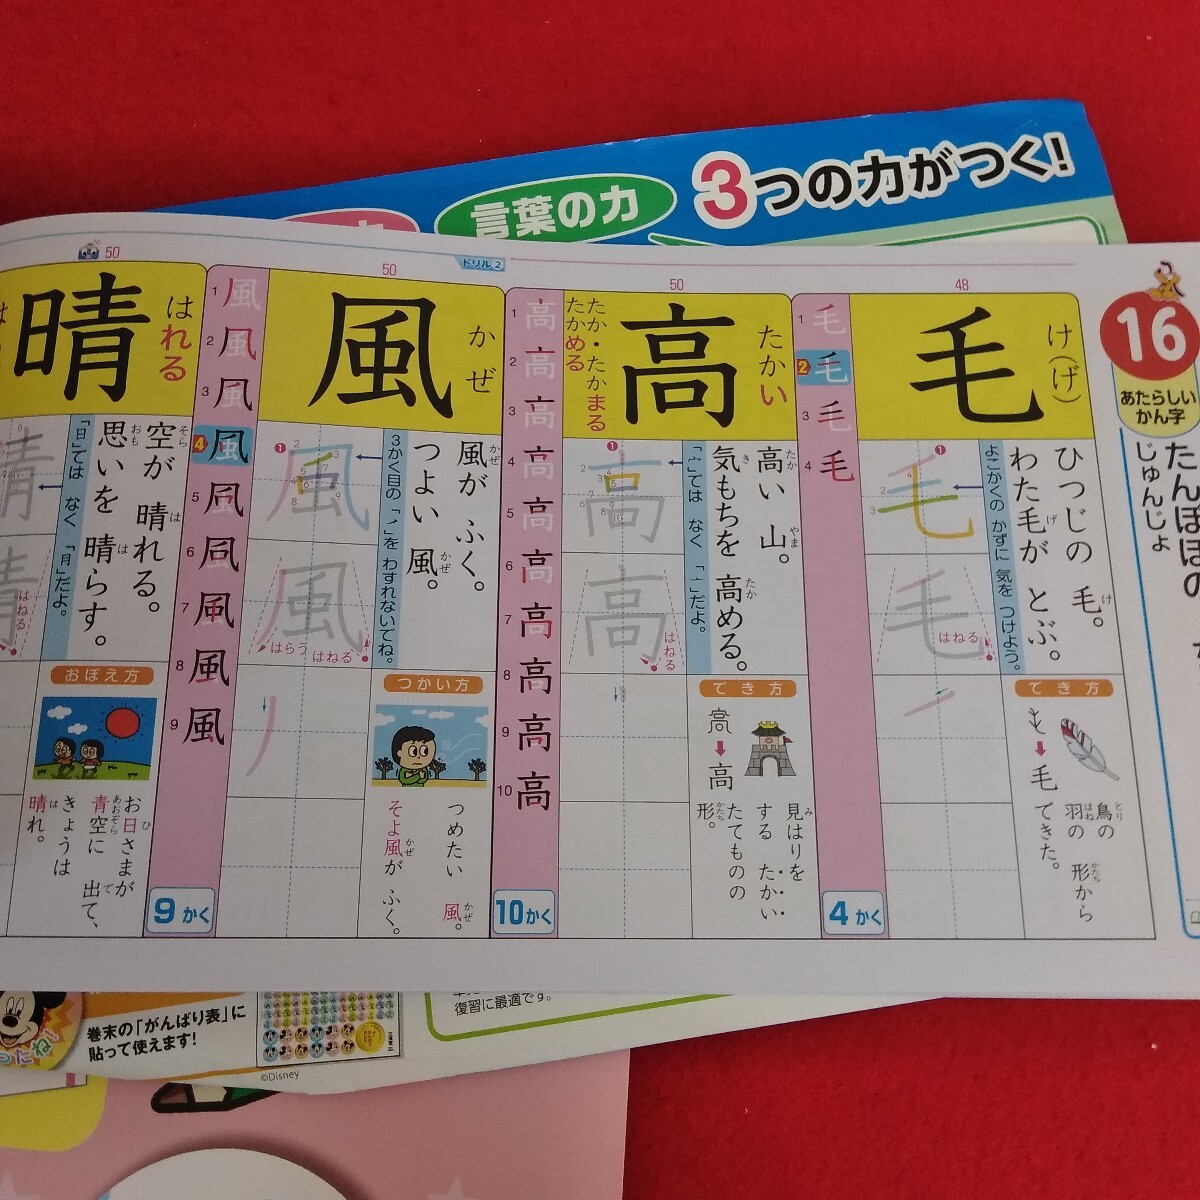 言葉の力
3つの力がつく!
ドリル2
16
あたらしい
かん字
たんぽぽの
じゅんじょ
48
毛
け(げ)
1 毛
2 毛
3 毛
4 毛
4かく
ひつじの 毛。
わた毛が とぶ。
よこかくの かずに 気を つけよう。
はねる
でき方
毛
鳥の
羽の 形から
できた。
50
高
たかい
たか・たかまる
たかめる
1 高
2 高
3 高
4 高
5 高
6 高
7 高
8 高
9 高
10 高
10かく
高い 山。
気もちを 高める。
はねる
でき方
高
見はりを
する たかい
たてものの
形。
50
風
かぜ
1 風
2 風
3 風
4 風
5 風
6 風
7 風
8 風
9 風
9かく
風が ふく。
つよい 風。
3かく目の「ノ」を わすれないでね。
はらう
はねる
つかい方
つめたい 風。
そよ風が ふく。
50
晴
はれる
空が 晴れる。
思いを 晴らす。
「日」では なく 「月」だよ。
はねる
おぼえ方
お日さまが
青空に 出て、
きょうは
晴れ。
巻末の「がんばり表」に
貼って使えます!
©Disney
復習に最適です。